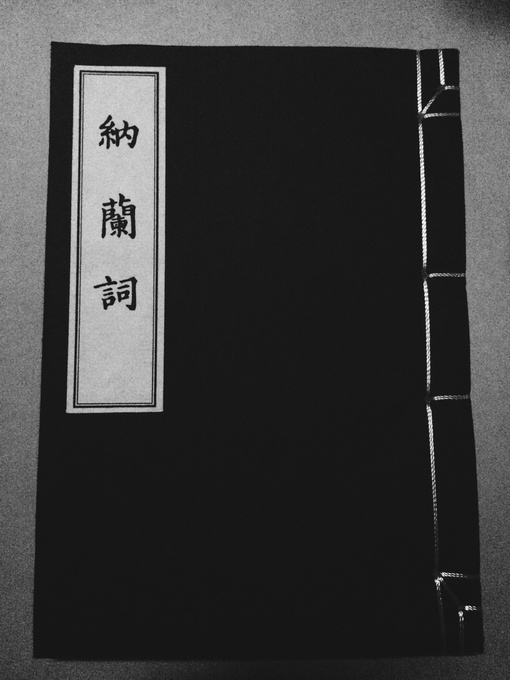 納蘭詞